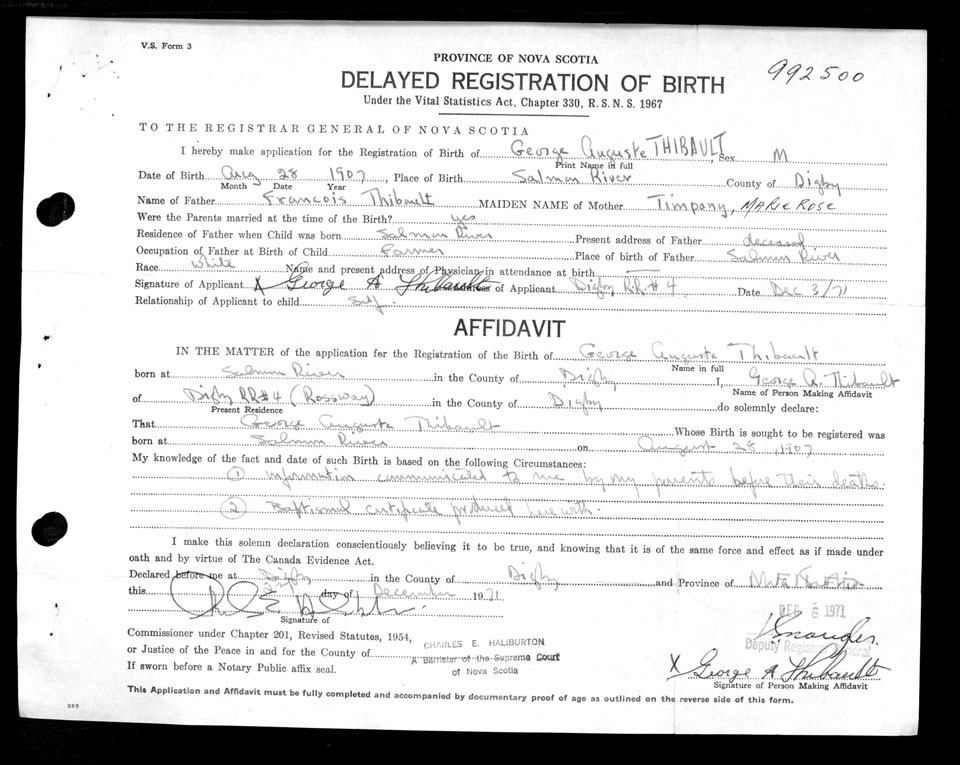 V.S. Form 3
PROVINCE OF NOVA SCOTIA
992500
DELAYED REGISTRATION OF BIRTH
Under the Vital Statistics Act, Chapter 330, R.S.N.S. 1967
TO THE REGISTRAR GENERAL OF NOVA SCOTIA
I hereby make application for the Registration of Birth of George Auguste THIBAULT, Sex M
Print Name in full
Date of Birth Aug 28 1907, Place of Birth Salmon River County of Digby
Month Date Year
Name of Father Francois Thibault MAIDEN NAME of Mother Timpany, MARIE ROSE
Were the Parents married at the time of the Birth? yes
Residence of Father when Child was born Salmon River Present address of Father deceased
Occupation of Father at Birth of Child Farmer Place of birth of Father Salmon River
Race White Name and present address of Physician in attendance at birth —
Signature of Applicant X George A Thibault Address of Applicant Digby RR#4 Date Dec 3/71
Relationship of Applicant to child Self
AFFIDAVIT
IN THE MATTER of the application for the Registration of the Birth of George Auguste Thibault
Name in full
born at Salmon River in the County of Digby I, George A. Thibault
Name of Person Making Affidavit
of Digby RR#4 (Rossway) in the County of Digby do solemnly declare:
Present Residence
That George Auguste Thibault Whose Birth is sought to be registered was
born at Salmon River on August 28, 1907
My knowledge of the fact and date of such Birth is based on the following Circumstances:
(1) Information communicated to me by my parents before their deaths.
(2) Baptismal certificate produced herewith.
I make this solemn declaration conscientiously believing it to be true, and knowing that it is of the same force and effect as if made under
oath and by virtue of The Canada Evidence Act.
Declared before me at Digby in the County of Digby and Province of Nova Scotia
this day of December 1971
DEC 6 1971
Signature of
Deputy Registrar General
Commissioner under Chapter 201, Revised Statutes, 1954,
or Justice of the Peace in and for the County of CHARLES E. HALIBURTON
A Barrister of the Supreme Court
If sworn before a Notary Public affix seal. of Nova Scotia
X George A Thibault
Signature of Person Making Affidavit
This Application and Affidavit must be fully completed and accompanied by documentary proof of age as outlined on the reverse side of this form.
365